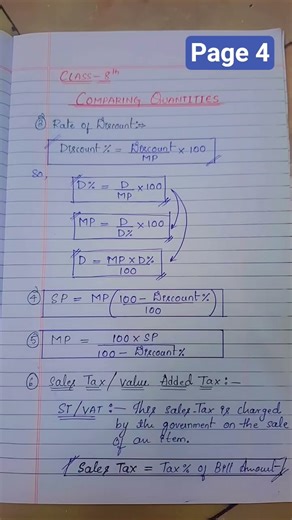 Page 4
CLASS-8th
COMPARING QUANTITIES
③ Rate of Discount:-
Discount% = Discount/MP × 100
So,
D% = D/MP × 100
MP = D/D% × 100
D = MP × D%/100
④ SP = MP(100 - Discount%/100)
⑤ MP = 100 × SP/100 - Discount%
⑥ Sales Tax/Value Added Tax:-
ST/VAT:- This sales Tax is charged
by the government on the sale
of an item.
Sales Tax = Tax% of Bill Amount